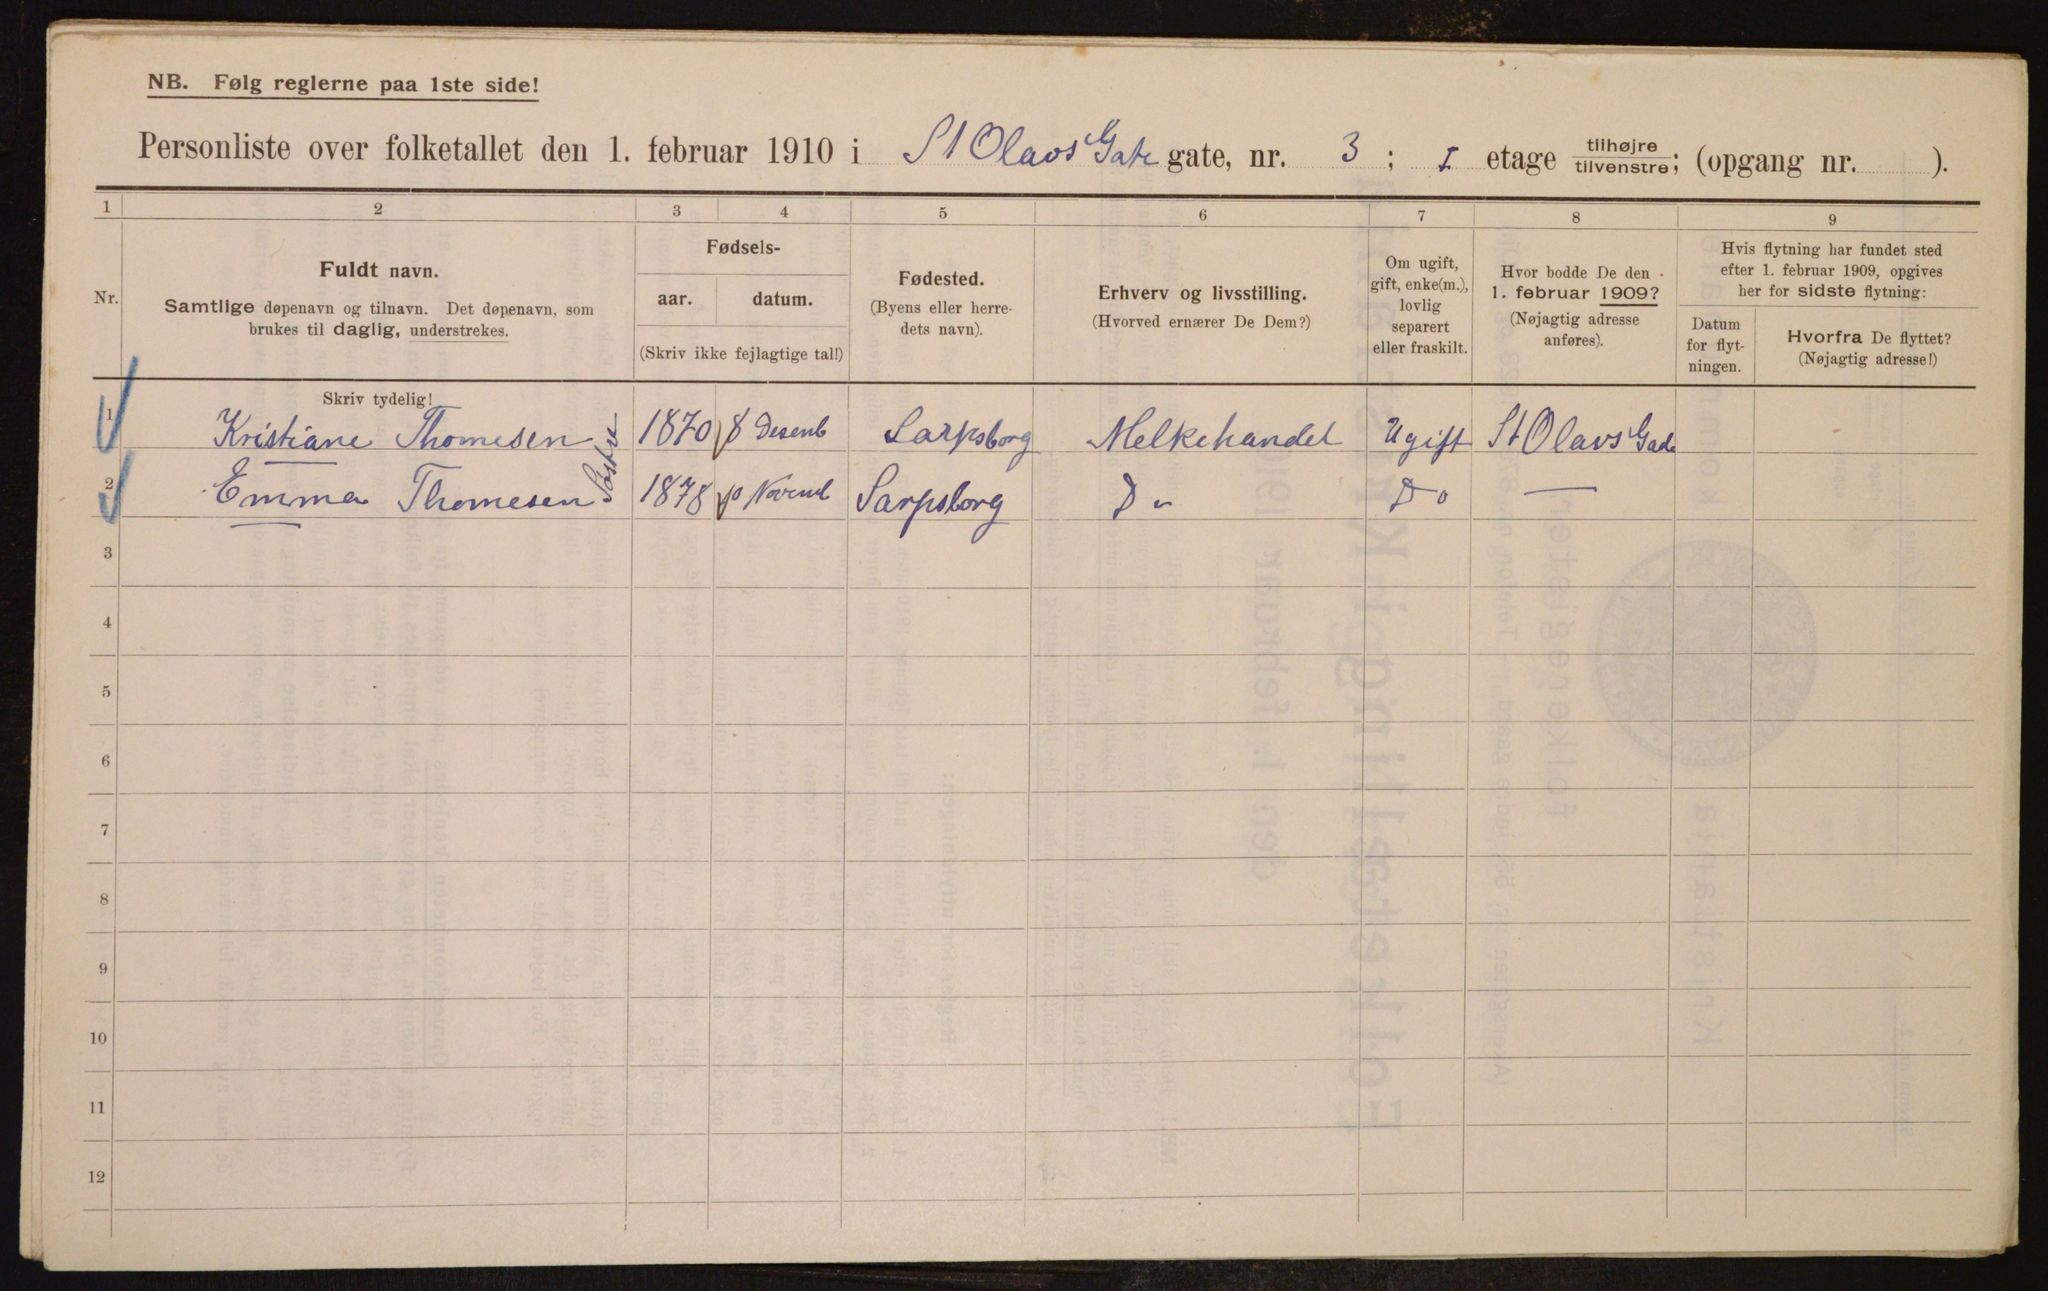 NB. Følg reglerne paa 1ste side!
Personliste over folketallet den 1. februar 1910 i St Olavs Gate gate, nr. 3 ; I etage tilhøjre tilvenstre; (opgang nr. ).
1 2 3 4 5 6 7 8 9
Nr.
Fuldt navn.
Samtlige døpenavn og tilnavn. Det døpenavn, som
brukes til daglig, understrekes.
Fødsels-
aar. datum.
(Skriv ikke fejlagtige tal!)
Fødested.
(Byens eller herre-
dets navn).
Erhverv og livsstilling.
(Hvorved ernærer De Dem?)
Om ugift,
gift, enke(m.),
lovlig
separert
eller fraskilt.
Hvor bodde De den
1. februar 1909?
(Nøjagtig adresse
anføres).
Hvis flytning har fundet sted
efter 1. februar 1909, opgives
her for sidste flytning:
Datum
for flyt-
ningen.
Hvorfra De flyttet?
(Nøjagtig adresse!)
Skriv tydelig!
1 Kristiane Thomesen 1870 8 Desemb Sarpsborg Melkehandel Ugift St Olavs Gade
2 Emma Thomesen 1878 Novemb Sarpsborg Do Do —
3
4
5
6
7
8
9
10
11
12